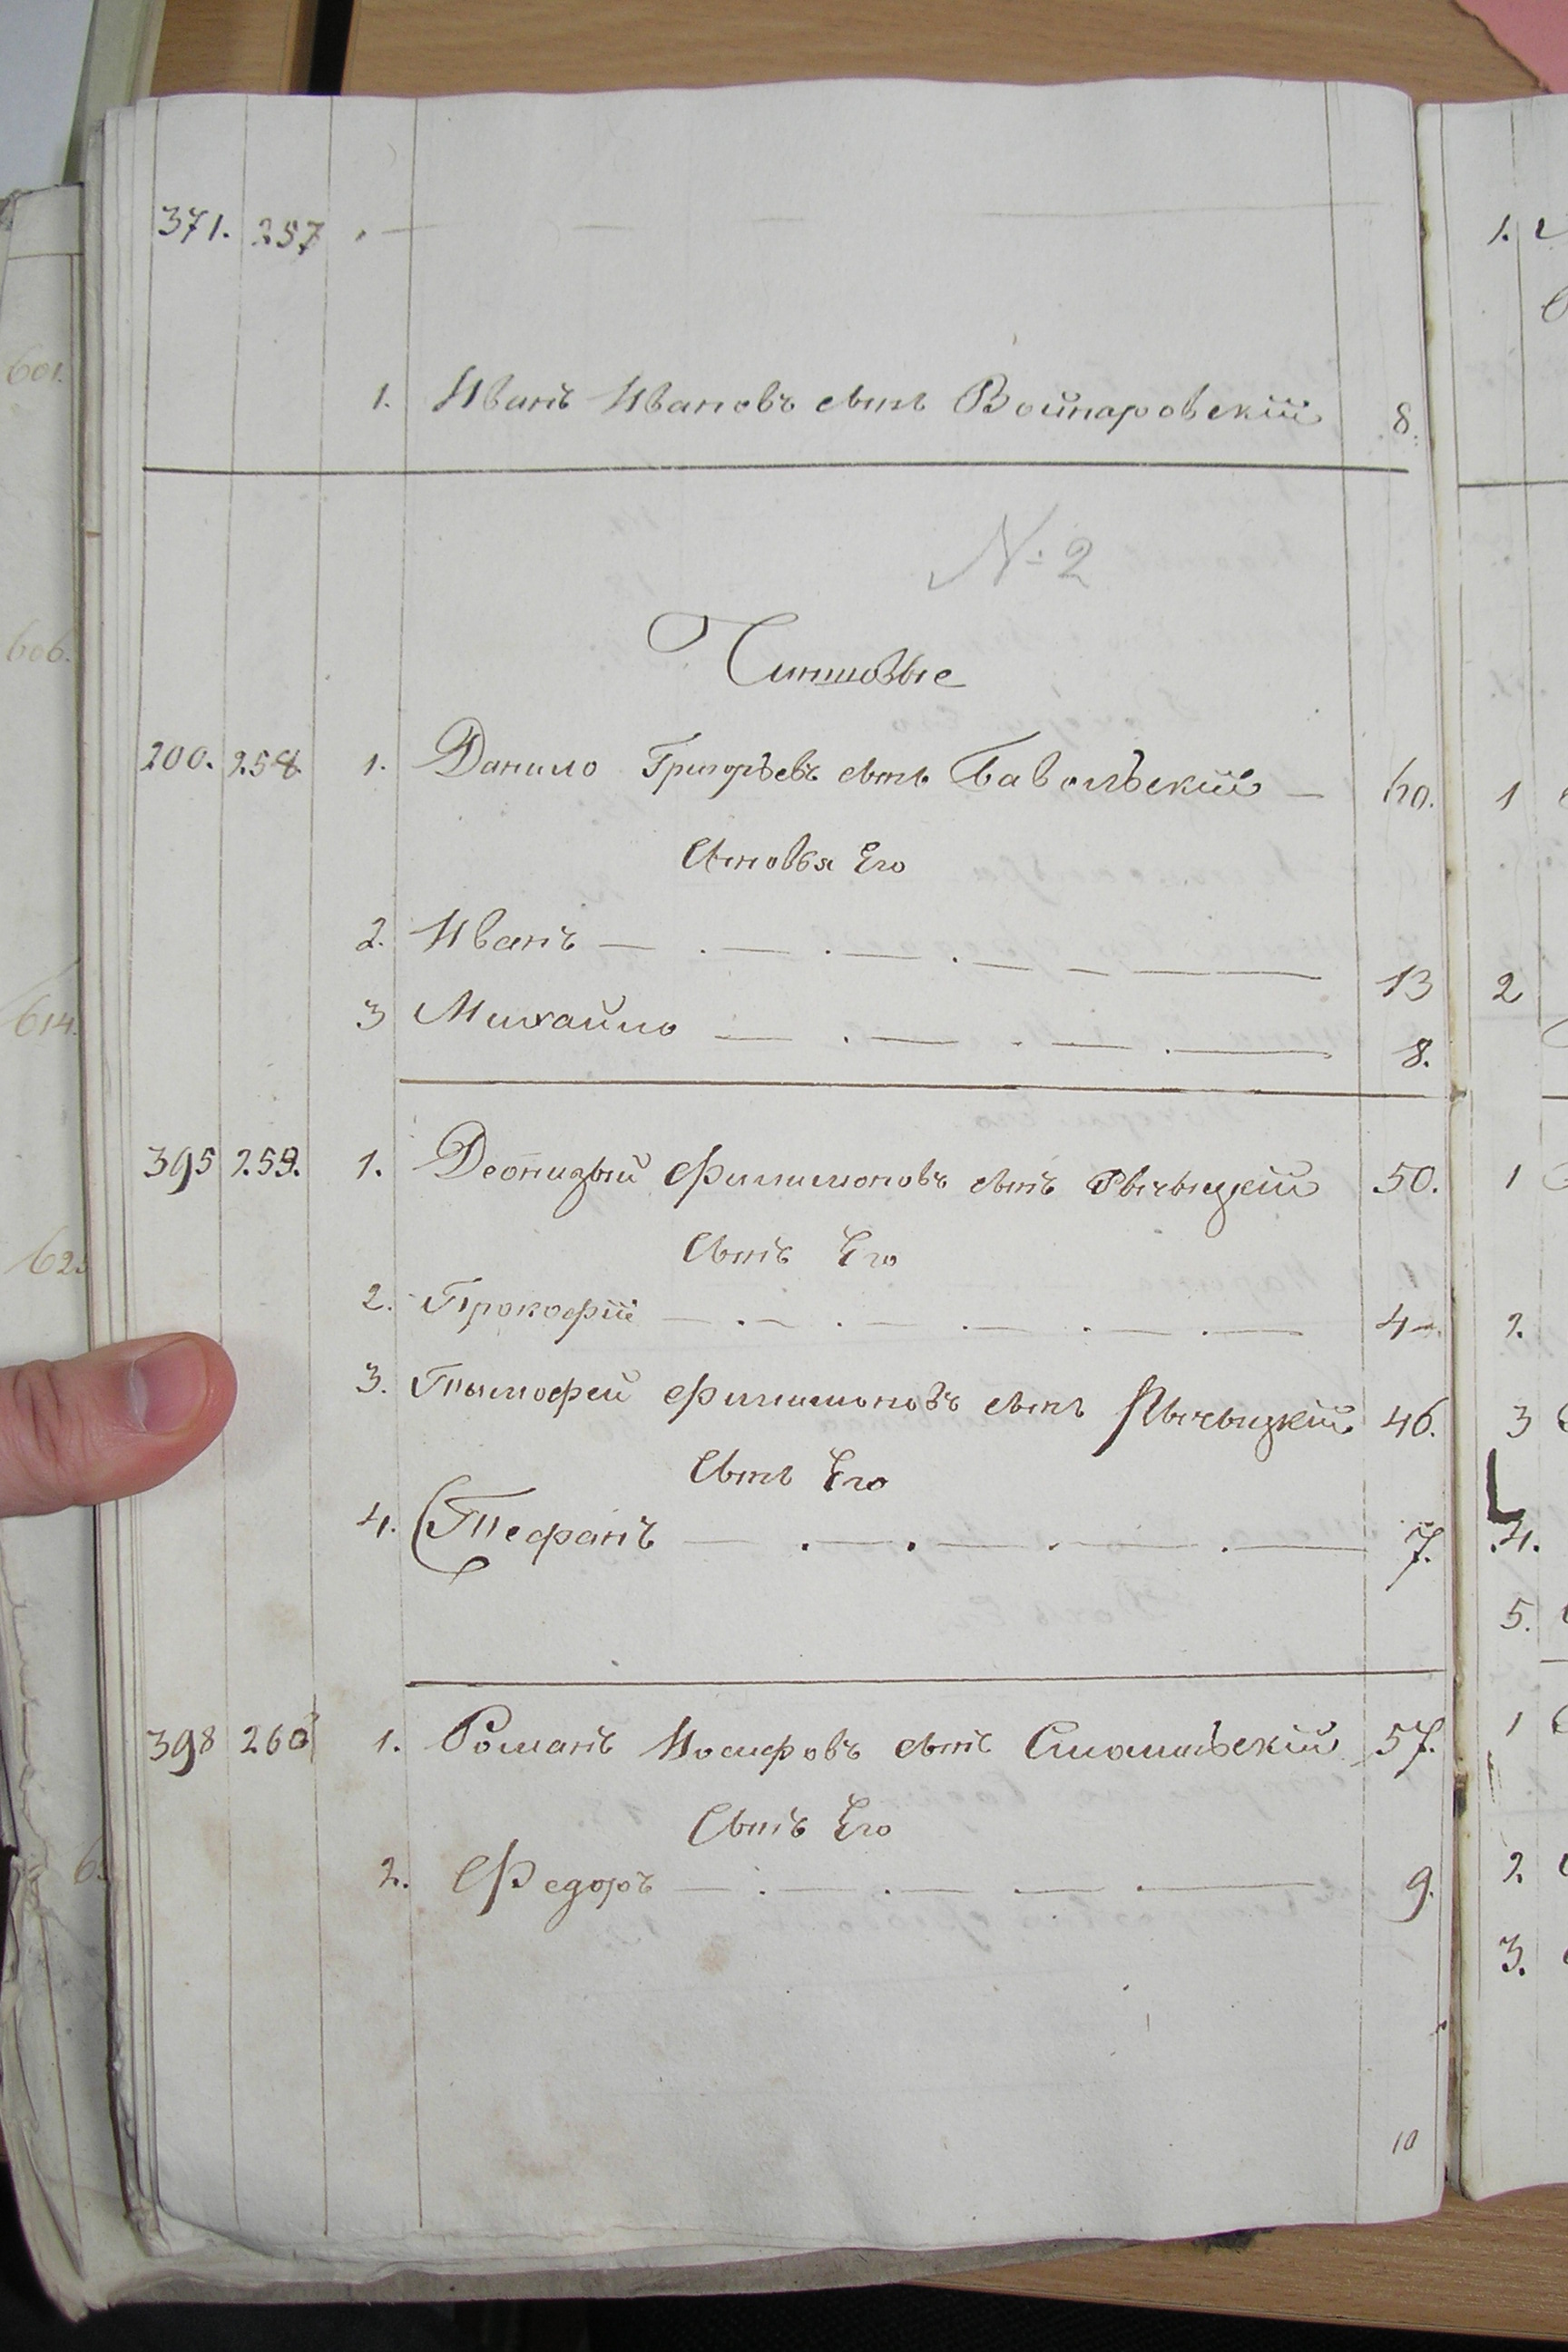 371. 257
1. Иванъ Ивановъ сынъ Войнаровскій 8.
№ 2
Чиншовые
200. 258 1. Данило Григорьевъ сынъ Бавольскій 40.
Сыновья Его
2. Иванъ 13
3 Михайло 8.
395 259. 1. Деонизый Филимоновъ сынъ Рычыцкій 50.
Сынъ Его
2. Прокофій 4
3. Тымофей Филимоновъ сынъ Рычыцкій 46.
Сынъ Его
4. Стефанъ 7.
398 260 1. Романъ Иосифовъ сынъ 57.
Сынъ Его
2. Федоръ 9.
10
601.
606.
614.
1.
1
2
1
2.
3
4.
5.
1
2
3.